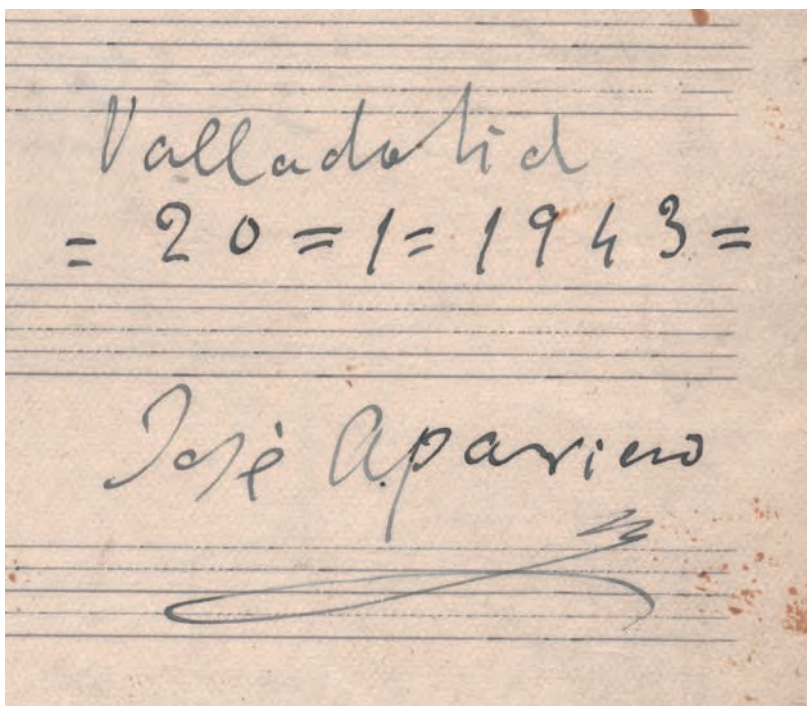 Valladolid
= 20 = 1 = 1943 =
José Aparicio